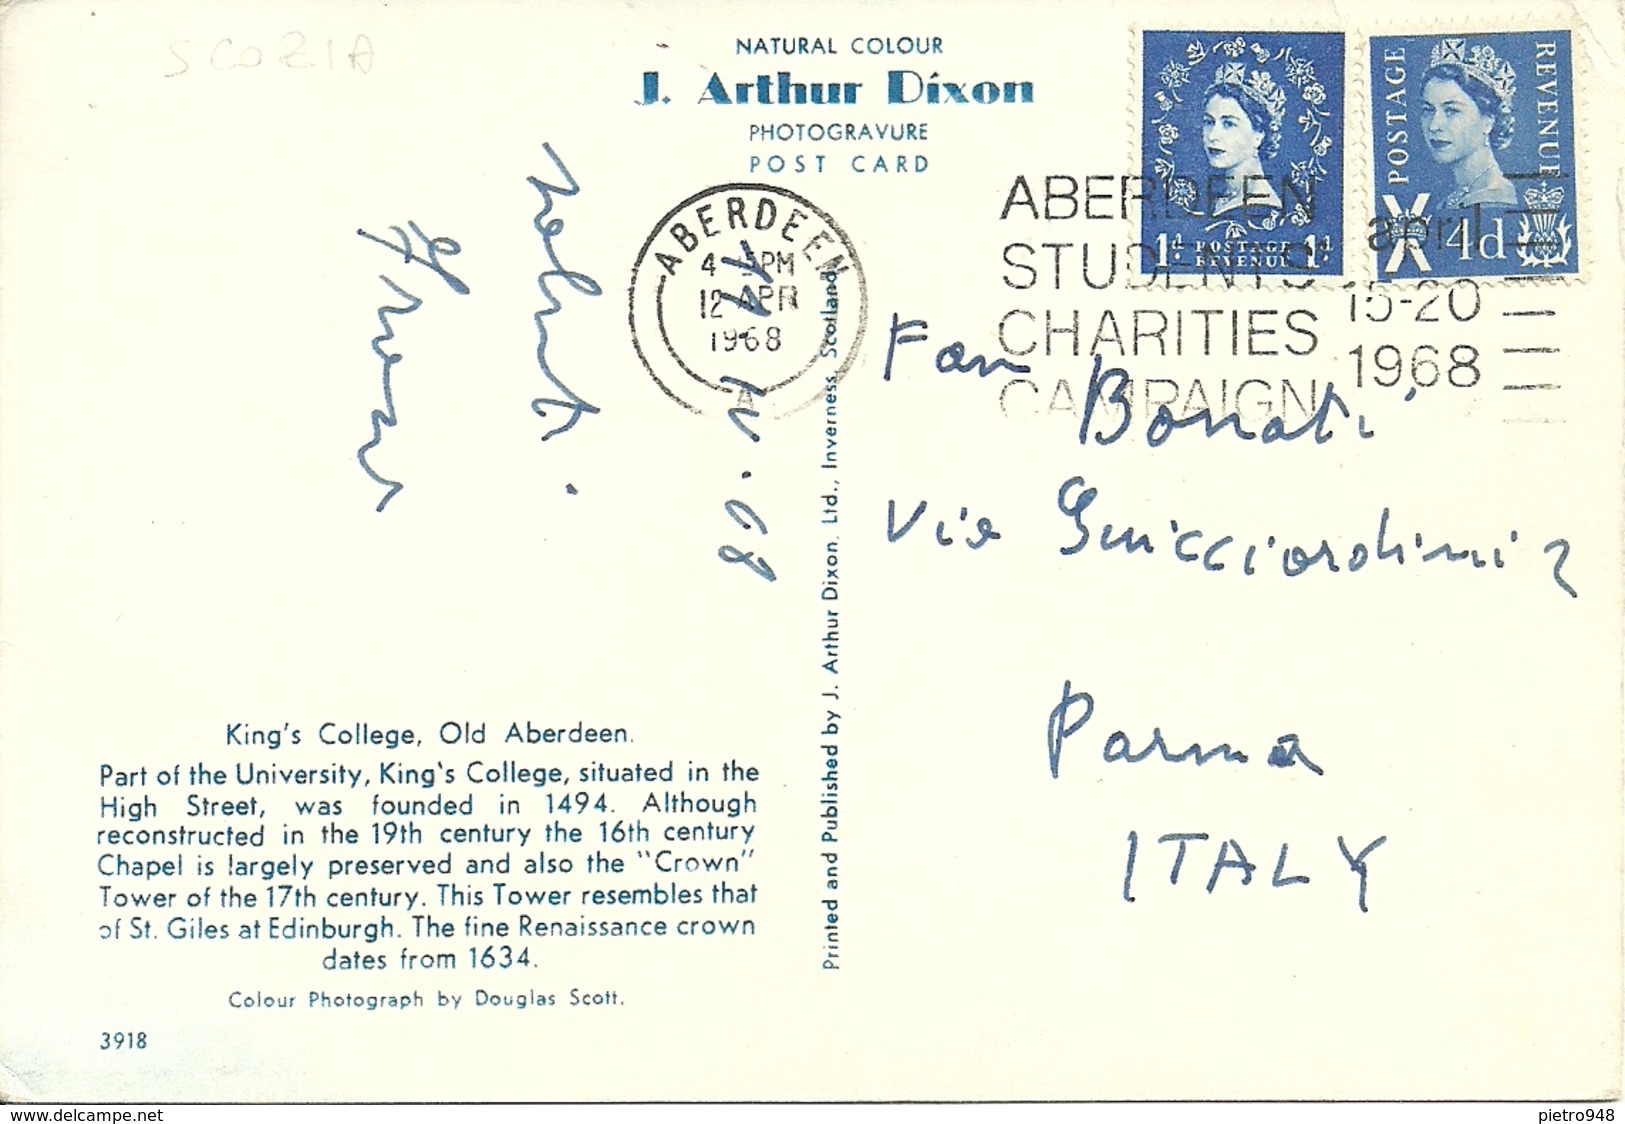 SCOZIA
NATURAL COLOUR
J. Arthur Dixon
PHOTOGRAVURE
POST CARD
ABERDEEN
4 PM
12 APR
1968
A
ABERDEEN
STUDENTS'
CHARITIES
CAMPAIGN
april
15-20
1968
1d POSTAGE REVENUE 1d
POSTAGE REVENUE
4d
IV. 68
Fam Bonati
Via Guicciardini 2
Parma
ITALY
Printed and Published by J. Arthur Dixon. Ltd., Inverness, Scotland
King's College, Old Aberdeen.
Part of the University, King's College, situated in the
High Street, was founded in 1494. Although
reconstructed in the 19th century the 16th century
Chapel is largely preserved and also the "Crown"
Tower of the 17th century. This Tower resembles that
of St. Giles at Edinburgh. The fine Renaissance crown
dates from 1634.
Colour Photograph by Douglas Scott.
3918
www.delcampe.net
pietro948